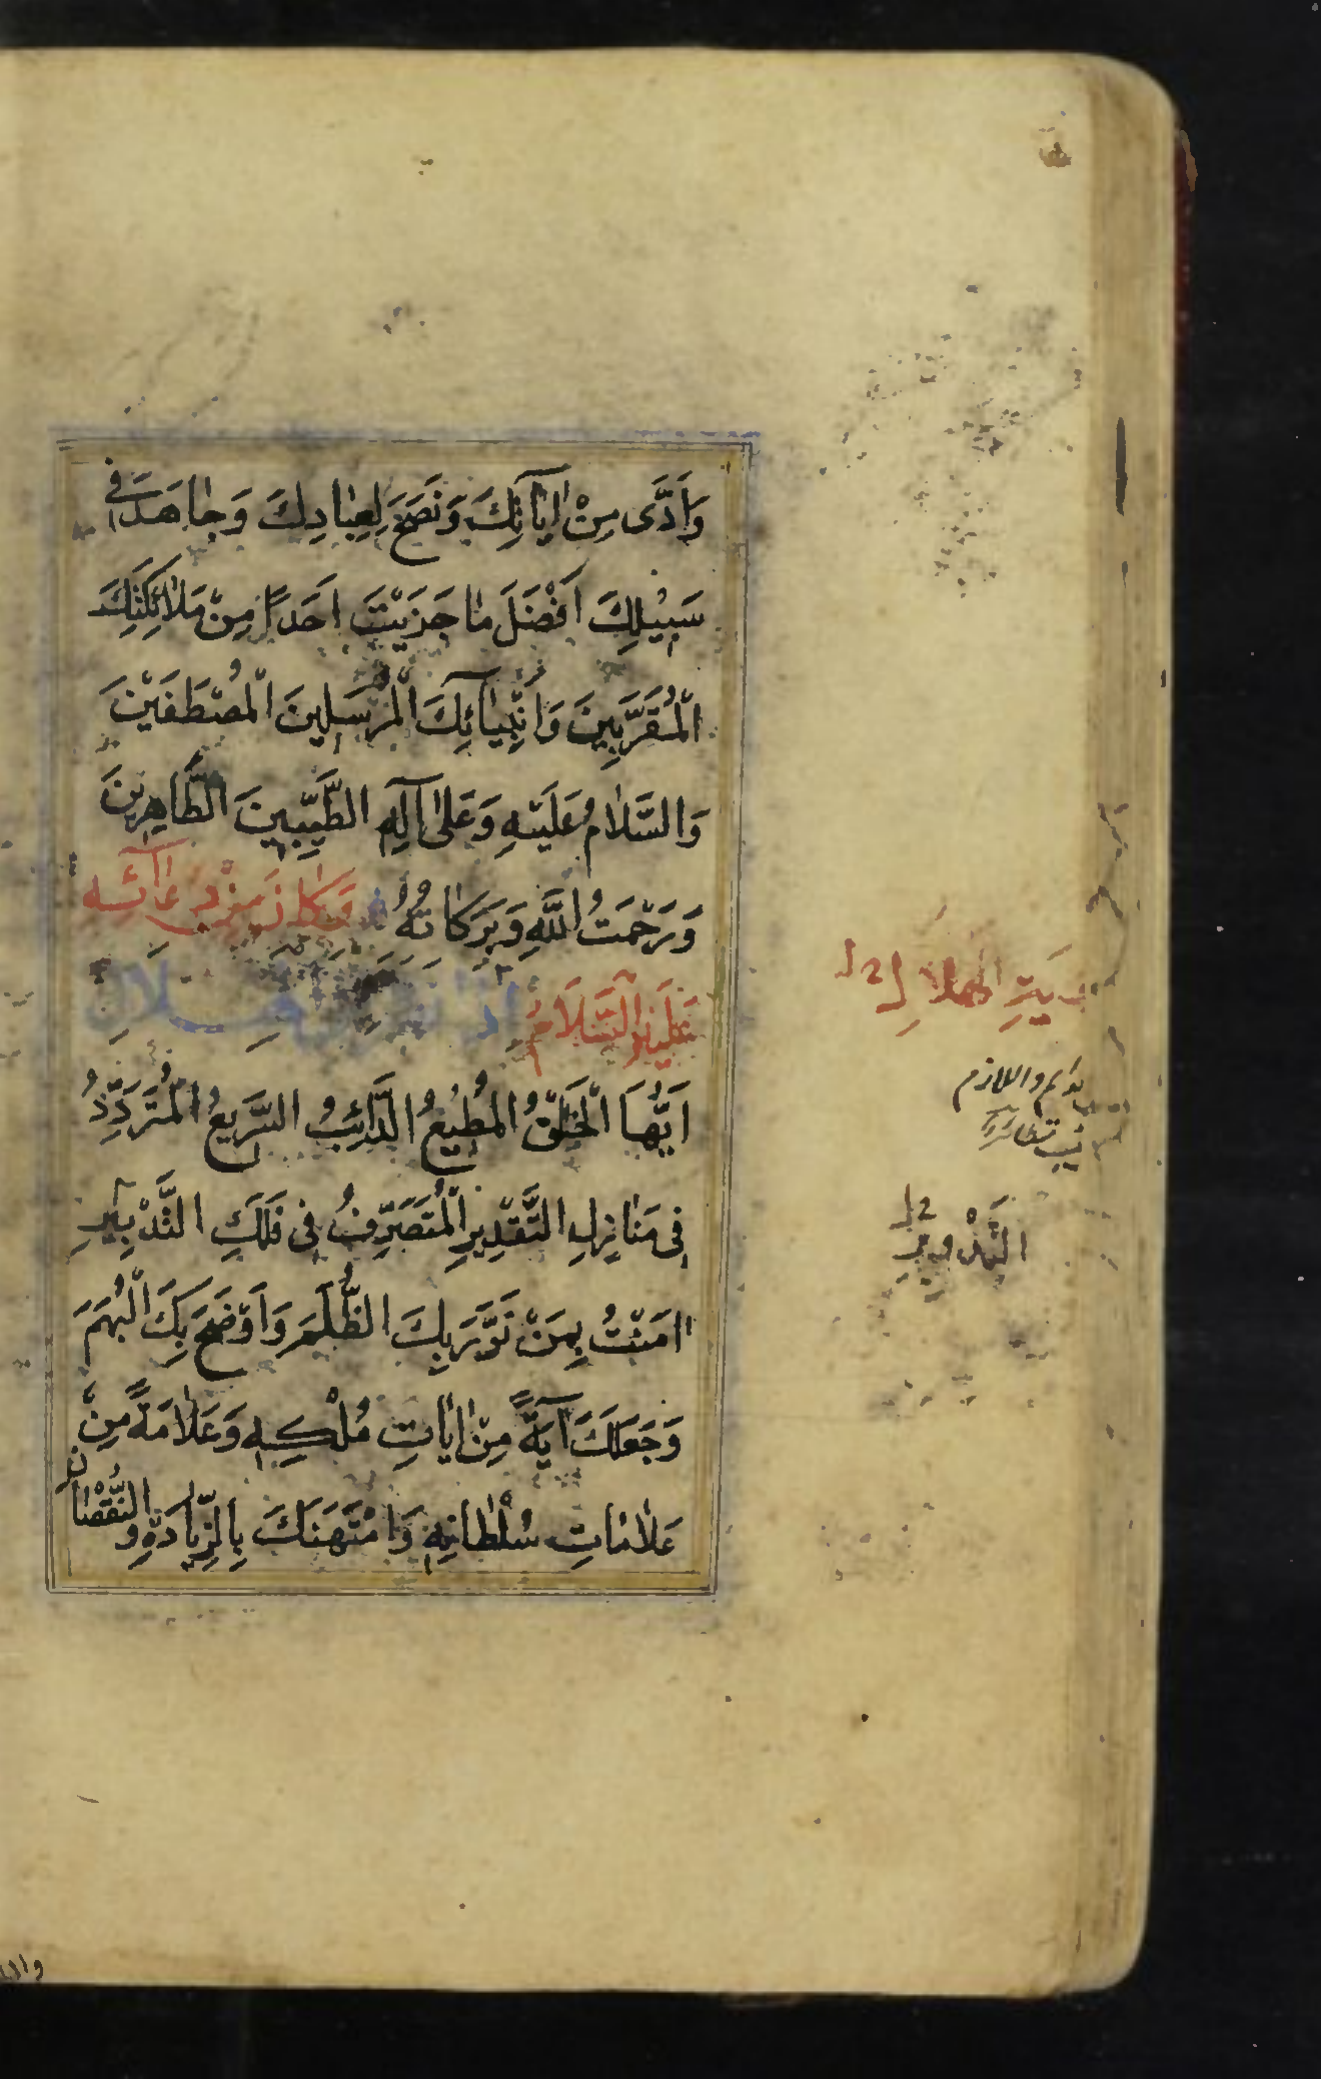 وَاَدَّى مِنْ اٰيَاٰتِكَ وَنَصَحَ لِعِبٰادِكَ وَجٰاهَدَ فِى
سَبِيْلِكَ اَفْضَلَ مٰا جَزَيْتَ اَحَدًا مِنْ مَلٰائِكَتِكَ
الْمُقَرَّبِينَ وَاَنْبِيٰائِكَ الْمُرْسَلِينَ الْمُصْطَفَيْنَ
وَالسَّلٰامُ عَلَيْهِ وَعَلٰى آلِهِ الطَّيِّبِينَ الطَّاهِرِينَ
وَرَحْمَتُ اللّٰهِ وَبَرَكٰاتُهُ وَكٰانَ مِنْ دُعٰائِهِ
عَلَيْهِ السَّلٰامُ اِذٰا نَظَرَ اِلَى الْهِلٰالِ
اَيُّهَا الْخَلْقُ الْمُطِيْعُ الدَّائِبُ السَّرِيعُ الْمُتَرَدِّدُ
فِى مَنٰازِلِ التَّقْدِيرِ الْمُتَصَرِّفُ فِى فَلَكِ التَّدْبِيرِ
اٰمَنْتُ بِمَنْ نَوَّرَ بِكَ الظُّلَمَ وَاَوْضَحَ بِكَ الْبُهَمَ
وَجَعَلَكَ آيَةً مِنْ اٰيٰاتِ مُلْكِهِ وَعَلٰامَةً مِنْ
عَلٰامٰاتِ سُلْطٰانِهِ وَامْتَهَنَكَ بِالزِّيٰادَةِ وَالنُّقْصٰانِ